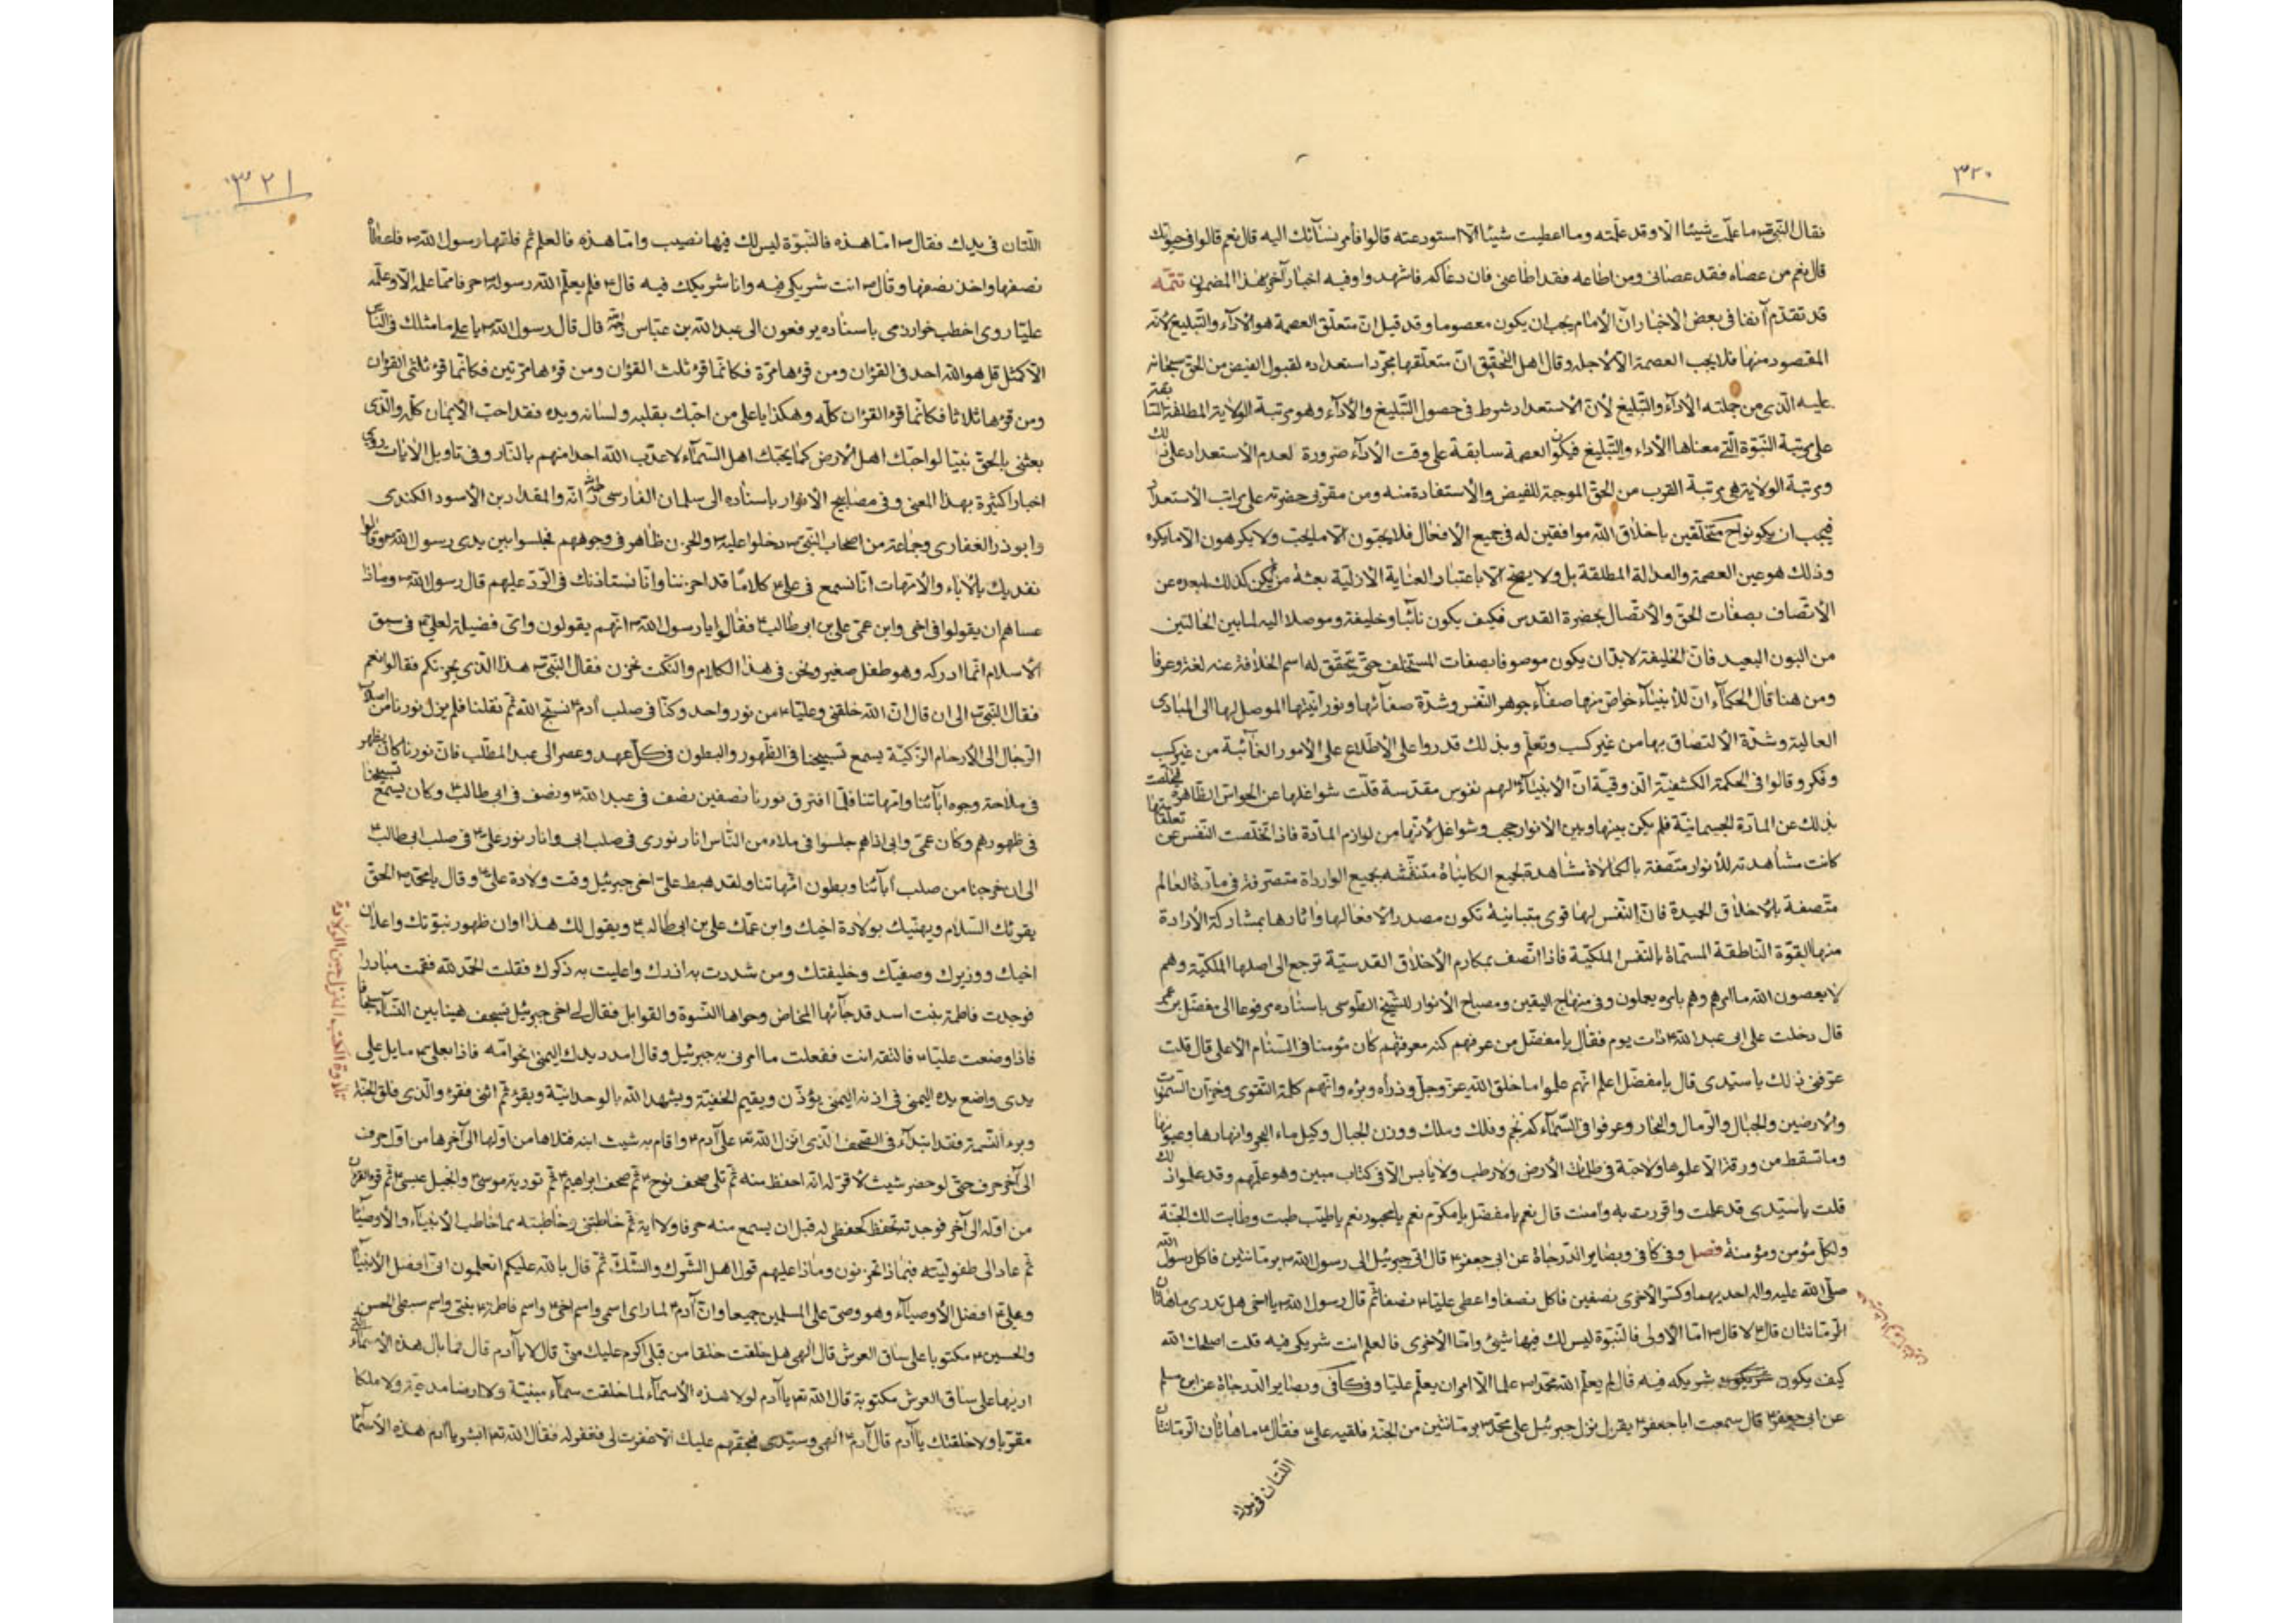 ٣٢٠
فقال النبى ص ما علمت شيئا الا وقد علمته وما اعطيت شيئا الا استودعته قالوا فأمر نسآئك اليه قال نعم قالوا فى حيوتك
قال نعم من عصاه فقد عصانى ومن اطاعه فقد اطاعنى فان دعاكم فاشهدوا وفيه اخبار آخر بهذا المضمون تتمّه
قد تقدّم آنفا فى بعض الاخبار انّ الامام يجب ان يكون معصوما وقد قيل انّ متعلّق العصمة هو الادآء والتبليغ لانّه
المقصود منها فلا يجب العصمة الا لاجله وقال اهل التحقيق انّ متعلّقها مجرّد استعداده لقبول الفيض من الحق سبحانه
عليه الذى من جملته الادآء والتبليغ لانّ الاستعداد شرط فى حصول التبليغ والادآء وهو مرتبة الولاية المطلقة السابقة
على مرتبة النبّوة الّتى معناها الأداء والتبليغ فيكون العصمة سابقة على وقت الادآء ضرورة لعدم الاستعداد على ذلك
ومرتبة الولاية هى مرتبة القرب من الحقّ الموجبة للفيض والأستفادة منه ومن مقرّبى حضرته على مراتب الأستعداد
فيجب ان يكونوا ح متخلّقين باخلاق الله موافقين له فى جميع الافعال فلا يحبّون الا ما يحبّ ولا يكرهون الا ما يكره
وذلك هو عين العصمة والعدالة المطلقة بل ولا يصحّ الا باعتبار العناية الازليّة بعثة من لم يكن كذلك لبعده عن
الأتّصاف بصفات الحق والأتّصال بحضرة القدس فكيف يكون نائبا وخليفة وموصلا اليه لما بين الحالتين
من البون البعيد فانّ الخليفة لابدّ ان يكون موصوفا بصفات المستخلف حتّى يتحقّق له اسم الخلافة عنه لغة وعرفا
ومن هنا قال الحكمآء انّ للأنبيآء خواصّ منها صفآء جوهر النّفس وشدّة صفآئها ونورانيّتها الموصل لها الى المبادى
العالية وشدّة الألتصاق بها من غير كسب وتعلّم وبذلك قدروا على الأطّلاع على الأمور الغآئبة من غير كسب
وفكر وقالوا فى الحكمة الكشفيّة الذوقيّة انّ الأنبيآء لهم نفوس مقدّسة قلّت شواغلها عن الحواسّ الظاهرة فتخلّصت
بذلك عن المادّة الجسمانيّة فلم يكن بينها وبين الأنوار حجب وشواغل لأنّها من لوازم المادّة فاذا تخلّصت النّفس عن تعلّقاتها
كانت مشاهدته للأنوار متّصفة بالكمالات مشاهدة لجميع الكاينات متنقّشة بجميع الواردات متصرفة فى مادّة العالم
متّصفة بالاخلاق الحميدة فانّ النّفس لها قوى متباينة تكون مصدر الأفعالها واثارها بمشاركة الأرادة
منها القوّة النّاطقة المسمّاة بالنّفس الملكيّة فاذا اتّصف بمكارم الأخلاق القدسيّة ترجع الى اصلها الملكيّة وهم
لا يعصون الله ما امرهم وهم بامره يعملون وفى منهاج اليقين ومصباح الأنوار للشّيخ الطّوسى باسناده مرفوعا الى مفضّل بن عمر
قال دخلت على ابى عبد الله ع ذات يوم فقال يا مفضّل من عرفهم كنه معرفتهم كان مؤمنا فى السّنام الأعلى قال قلت
عرّفنى ذلك يا سيّدى قال يا مفضّل اعلم انّهم علموا ما خلق الله عزّ وجلّ وذرأه وبرأه وانّهم كلمة التّقوى وخزّان السّموات
والارضين والجبال والرّمال والبحار وعرفوا فى السّمآء كم نجم وفلك وملك ووزن الجبال وكيل ماء البحر وانهارها وعيونها
وما تسقط من ورقة الا علموها ولا حبّة فى ظلمات الأرض ولا رطب ولا يابس الا فى كتاب مبين وهو علمهم وقد علموا ذلك
قلت يا سيّدى قد علمت واقررت به وآمنت قال نعم يا مفضّل يا مكرّم نعم يا محبور نعم يا طيّب طبت وطابت لك الجنّة
ولكلّ مؤمن ومؤمنة فصل وفى كافى وبصاير الدّرجاة عن ابى جعفر ع قال اتى جبرئيل الى رسول الله ص برمّانتين فاكل رسول الله
صلّى الله عليه واله احديهما وكسر الأخرى بنصفين فاكل نصفا واعطى عليّا ع نصفا ثم قال رسول الله ص يا اخى هل تدرى ما هاتان
الرّمانتان قال ع لا قال ص امّا الأولى فالنّبوة ليس لك فيها شيئ وامّا الأخرى فالعلم انت شريكى فيه قلت اصلحك الله
كيف يكون شريكه فيه قال لم يعلّم الله محمّدا ص علما الا امر ان يعلّم عليّا وفى كافى وبصاير الدرجاة عن ابن مسلم
عن ابى جعفر ع قال سمعت ابا جعفر ع يقول نزل جبرئيل على محمّد ص برمّانتين من الجنّة فلقيه على ع فقال ع ما هاتان الرّمانتان
اللّتان فى يدك
٣٢١
اللّتان فى يدك فقال ص امّا هذه فالنبّوة ليس لك فيها نصيب وامّا هذه فالعلم ثم فلقها رسول الله ص فاعطاه
نصفها واخذ نصفها وقال ص انت شريكى فيه وانا شريكك فيه قال ع فلم يعلّم الله رسوله ص حرفا ممّا علمه الا وعلّمه
عليّا روى اخطب خوارزمى باسناده يرفعون الى عبد الله بن عبّاس قال قال رسول الله ص يا على ما مثلك فى النّاس
الا كمثل قل هو الله احد فى القرآن ومن قرءها مرّة فكانّما قرء ثلث القرآن ومن قرءها مرّتين فكانّما قرء ثلثى القرآن
ومن قرءها ثلاثا فكانّما قرء القرآن كلّه وهكذا يا على من احبّك بقلبه ولسانه ويده فقد احبّ الأيمان كلّه والّذى
بعثنى بالحقّ نبيّا لو احبّك اهل الأرض كما يحبّك اهل السّمآء لا عذّب الله احدا منهم بالنّار وفى تاويل الأيات روى
اخبارا كثيرة بهذا المعنى وفى مصابيح الانوار باسناده الى سلمان الفارسى انّه والمقداد بن الأسود الكندى
وابوذر الغفارى وجماعة من اصحاب النّبى ص دخلوا عليه ص والحزن ظاهر فى وجوههم فجلسوا بين يدى رسول الله ص وقالوا
نفديك بالأباء والأمّهات انّا نسمع فى على ع كلاما قد احزننا وانّا نستأذنك فى الرّدّ عليهم قال رسول الله ص وماذا
عساهم ان يقولوا فى اخى وابن عمّى على بن ابى طالب ع فقالوا يا رسول الله ص انّهم يقولون واىّ فضيلة لعلى ع فى سبق
الأسلام انّما ادركه وهو طفل صغير ونحن فى هذا الكلام والنّكت نحزن فقال النّبى ص هذا الذى يحزنكم فقالوا نعم
فقال النبى ص الى ان قال انّ الله خلقنى وعليّا ع من نور واحد وكنّا فى صلب آدم ع نسبّح الله ثم نقلنا فلم يزل نورنا من اصلاب
الرّجال الى الأرحام الزّكيّة يسمع تسبيحنا فى الظهور والبطون فى كلّ عهد وعصر الى عبد المطّلب فانّ نورنا كان يظهر
فى ملاحة وجوه آبآئنا وامّهاتنا فلمّا افترق نورنا نصفين نصف فى عبد الله ع ونصف فى ابى طالب ع وكان يسمع تسبيحنا
فى ظهورهم وكان عمّى وابى اذا هم جلسوا فى ملاء من النّاس انار نورى فى صلب ابى وانار نور على ع فى صلب ابى طالب ع
الى ان خرجنا من صلب آبآئنا وبطون امّهاتنا ولقد هبط علىّ اخى جبرئيل وقت ولادة على ع وقال يا محمّد ص الحقّ
يقرئك السّلام ويهنّيك بولادة اخيك وابن عمّك على بن ابى طالب ع ويقول لك هذا اوان ظهور نبوّتك واعلان
اخيك ووزيرك وصفيّك وخليفتك ومن شددت به ازرك واعليت به ذكرك فقلت الحمد لله فقمت مبادرا
فوجدت فاطمة بنت اسد قد جآئها المخاض وحولها النّسوة والقوابل فقال لى اخى جبرئيل سجف بينها وبين النّسآء سجفا
فاذا وضعت عليّا ع فالتقه انت ففعلت ما امرنى به جبرئيل وقال امدد يدك اليمنى نحو امّه فاذا بعلى ع مايل على
يدى واضع يده اليمنى فى اذنه اليمنى يؤذّن ويقيم الحنفيّة ويشهد الله بالوحدانيّة ويقرء ثم انثنى فقرء والّذى فلق الحبّة
وبرء النّسمة فقد ابتدآء فى الصّحف الّذى انزل الله تع على آدم ع واقام به شيث ابنه فتلاها من اوّلها الى آخرها من اوّل حرف
الى آخر حرف حتّى لو حضر شيث لأقرّ له انّه احفظ منه ثم تلى صحف نوح ع ثم صحف ابراهيم ع ثم تورية موسى ع وانجيل عيسى ع ثم قرء القرآن
من اوّله الى آخر فوجدته يحفظ كحفظى له قبل ان يسمع منه حرفا ولا اية ثم خاطبنى وخاطبته بما خاطب الأنبيآء والأوصيآء
ثم عاد الى طفوليّته فبماذا تحزنون وماذا عليهم قول اهل الشّرك والشّك ثم قال بالله عليكم اتعلمون انّى افضل الأنبيآء
وعلى ع افضل الأوصيآء وهو وصىّ على المسلمين جميعا وانّ آدم ع لما رآى اسمى واسم اخى ع واسم فاطمة ع بنتى واسم سبطى الحسن
والحسين ع مكتوبا على ساق العرش قال الهى هل خلقت خلقا من قبلى اكرم عليك منّى قال لا يا آدم قال فما بال هذه الأسمآء التى
اريها على ساق العرش مكتوبة قال الله تع يا آدم لولا هذه الأسمآء لما خلقت سمآء مبنيّة ولا ارضا مدحيّة ولا ملكا
مقرّبا ولا خلقتك يا آدم قال آدم ع الهى وسيّدى فبحقّهم عليك الا غفرت لى فغفر له فقال الله تع ابشر يا آدم هذه الأسمآء
تلاوة الكتب المنزل حين الولادة